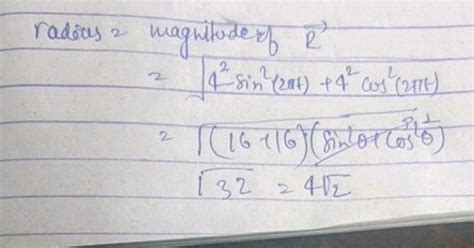 radius = magnitude of R⃗
= √4² sin²(2πt) + 4² cos²(2πt)
= √(16+16)(sin²θ+cos²θ) 1
√32 = 4√2